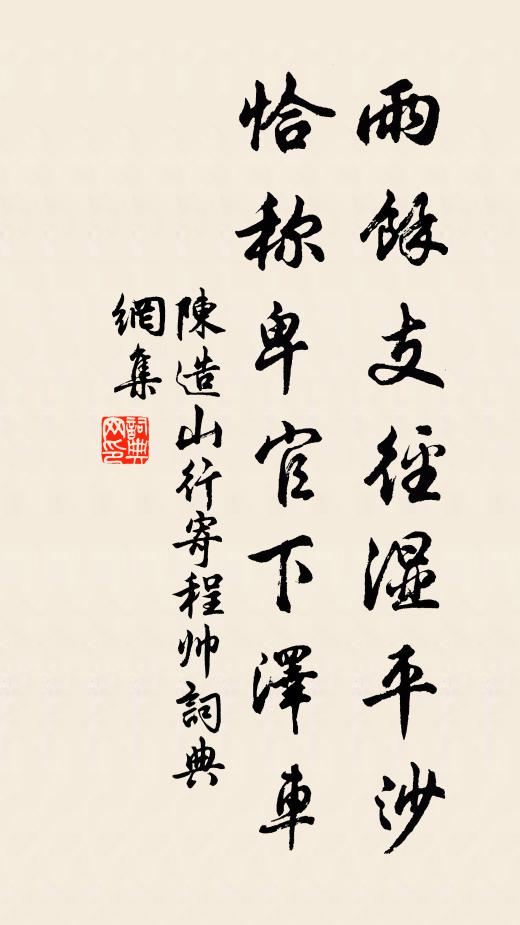 雨餘支徑濕平沙
恰称卑官下澤車
陳造山行寄程帅詞典
網集
詞典
网印